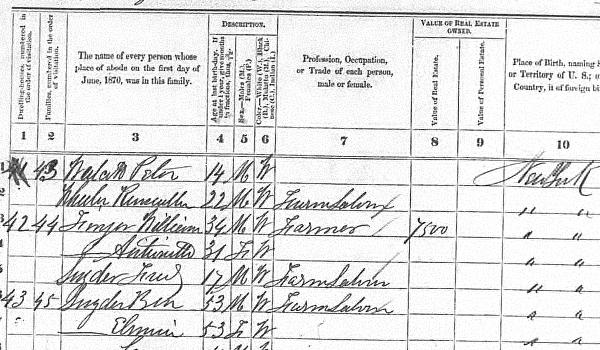 DESCRIPTION.
VALUE OF REAL ESTATE OWNED.
Dwelling-houses, numbered in the order of visitation.
Families, numbered in the order of visitation.
The name of every person whose place of abode on the first day of June, 1870, was in this family.
Age at last birth-day. If under 1 year, give months in fractions, thus,
Sex.—Males (M.), Females (F.)
Color.—White (W.), Black (B.), Mulatto (M.), Chinese (C.), Indian (I.)
Profession, Occupation, or Trade of each person, male or female.
Value of Real Estate.
Value of Personal Estate.
Place of Birth, naming S
or Territory of U. S.; o
Country, if of foreign bi
1 2 3 4 5 6 7 8 9 10
43 Peter 14 M W New York
Wheeler 22 M W Farm " "
42 44 William 34 M W Farmer 7500 " "
31 F W " "
Snyder Fred 17 M W Farm " "
43 45 Snyder Ben 53 M W Farm " "
53 F W " "